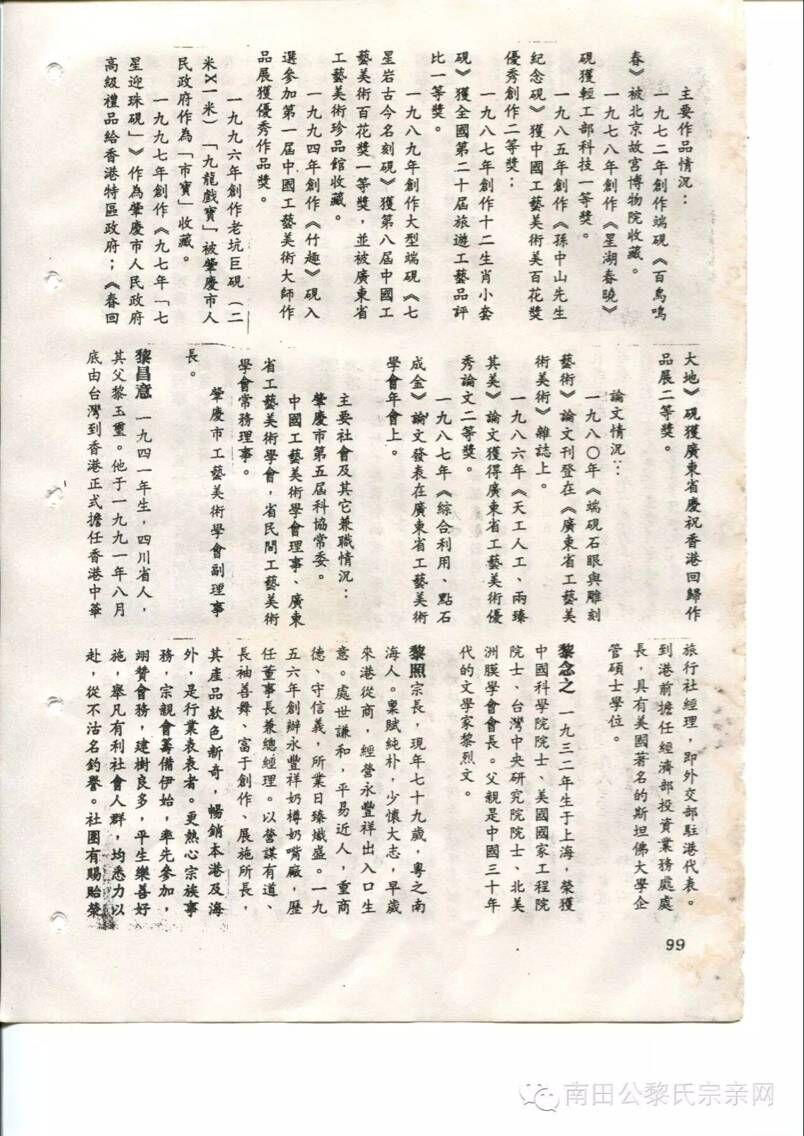 主要作品情況：
一九七二年創作端硯《百鳥鳴
春》被北京故宮博物院收藏。
一九七八年創作《星湖春曉》
硯獲輕工部科技一等獎。
一九八五年創作《孫中山先生
紀念硯》獲中國工藝美術美百花獎
優秀創作二等獎；
一九八七年創作十二生肖小套
硯》獲全國第二十屆旅遊工藝品評
比一等獎。
一九八九年創作大型端硯《七
星岩古今名刻硯》獲第八屆中國工
藝美術百花獎一等獎，並被廣東省
工藝美術珍品館收藏。
一九九四年創作《竹趣》硯入
選參加第一屆中國工藝美術大師作
品展獲優秀作品獎。
一九九六年創作老坑巨硯（二
米X一米）「九龍戲寶」被肇慶市人
民政府作為「市寶」收藏。
一九九七年創作《九七年「七
星迎珠硯」》作為肇慶市人民政府
高級禮品給香港特區政府；《春回
大地》硯獲廣東省慶祝香港回歸作
品展二等獎。
論文情況：
一九八〇年《端硯石眼與雕刻
藝術》論文刊登在《廣東省工藝美
術美術》雜誌上。
一九八六年《天工人工、兩臻
其美》論文獲得廣東省工藝美術優
秀論文二等獎。
一九八七年《綜合利用、點石
成金》論文發表在廣東省工藝美術
學會年會上。
主要社會及其它兼職情況：
肇慶市第五屆科協常委。
中國工藝美術學會理事、廣東
省工藝美術學會，省民間工藝美術
學會常務理事。
肇慶市工藝美術學會副理事
長。
黎昌意 一九四一年生，四川省人，
其父黎玉璽。他于一九九一年八月
底由台灣到香港正式擔任香港中華
旅行社經理，即外交部駐港代表。
到港前擔任經濟部投資業務處處
長，具有美國著名的斯坦佛大學企
管碩士學位。
黎念之 一九三二年生于上海，榮獲
中國科學院院士、美國國家工程院
院士、台灣中央研究院院士、北美
洲膜學會會長。父親是中國三十年
代的文學家黎烈文。
黎照宗長，現年七十九歲，粵之南
海人。稟賦純朴，少懷大志，早歲
來港從商，經營永豐祥出入口生
意。處世謙和，平易近人，重商
德、守信義，所業日臻熾盛。一九
五六年創辦永豐祥奶樽奶嘴廠，歷
任董事長兼總經理。以營謀有道、
長袖善舞、富于創作、展施所長，
其產品款色新奇，暢銷本港及海
外，是行業表表者。更熱心宗族事
務，宗親會籌備伊始，率先參加，
翊贊會務，建樹良多，平生樂善好
施，舉凡有利社會人群，均悉力以
赴，從不沽名釣譽。社團有賜貽榮
99
南田公黎氏宗亲网